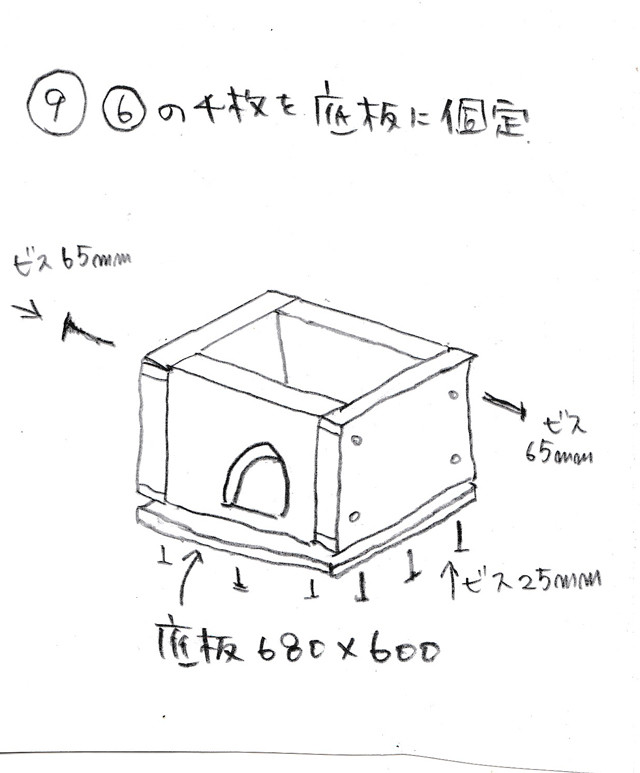 ⑨ ⑥の4枚を底板に固定
ビス65mm
ビス
65mm
ビス25mm
底板680×600